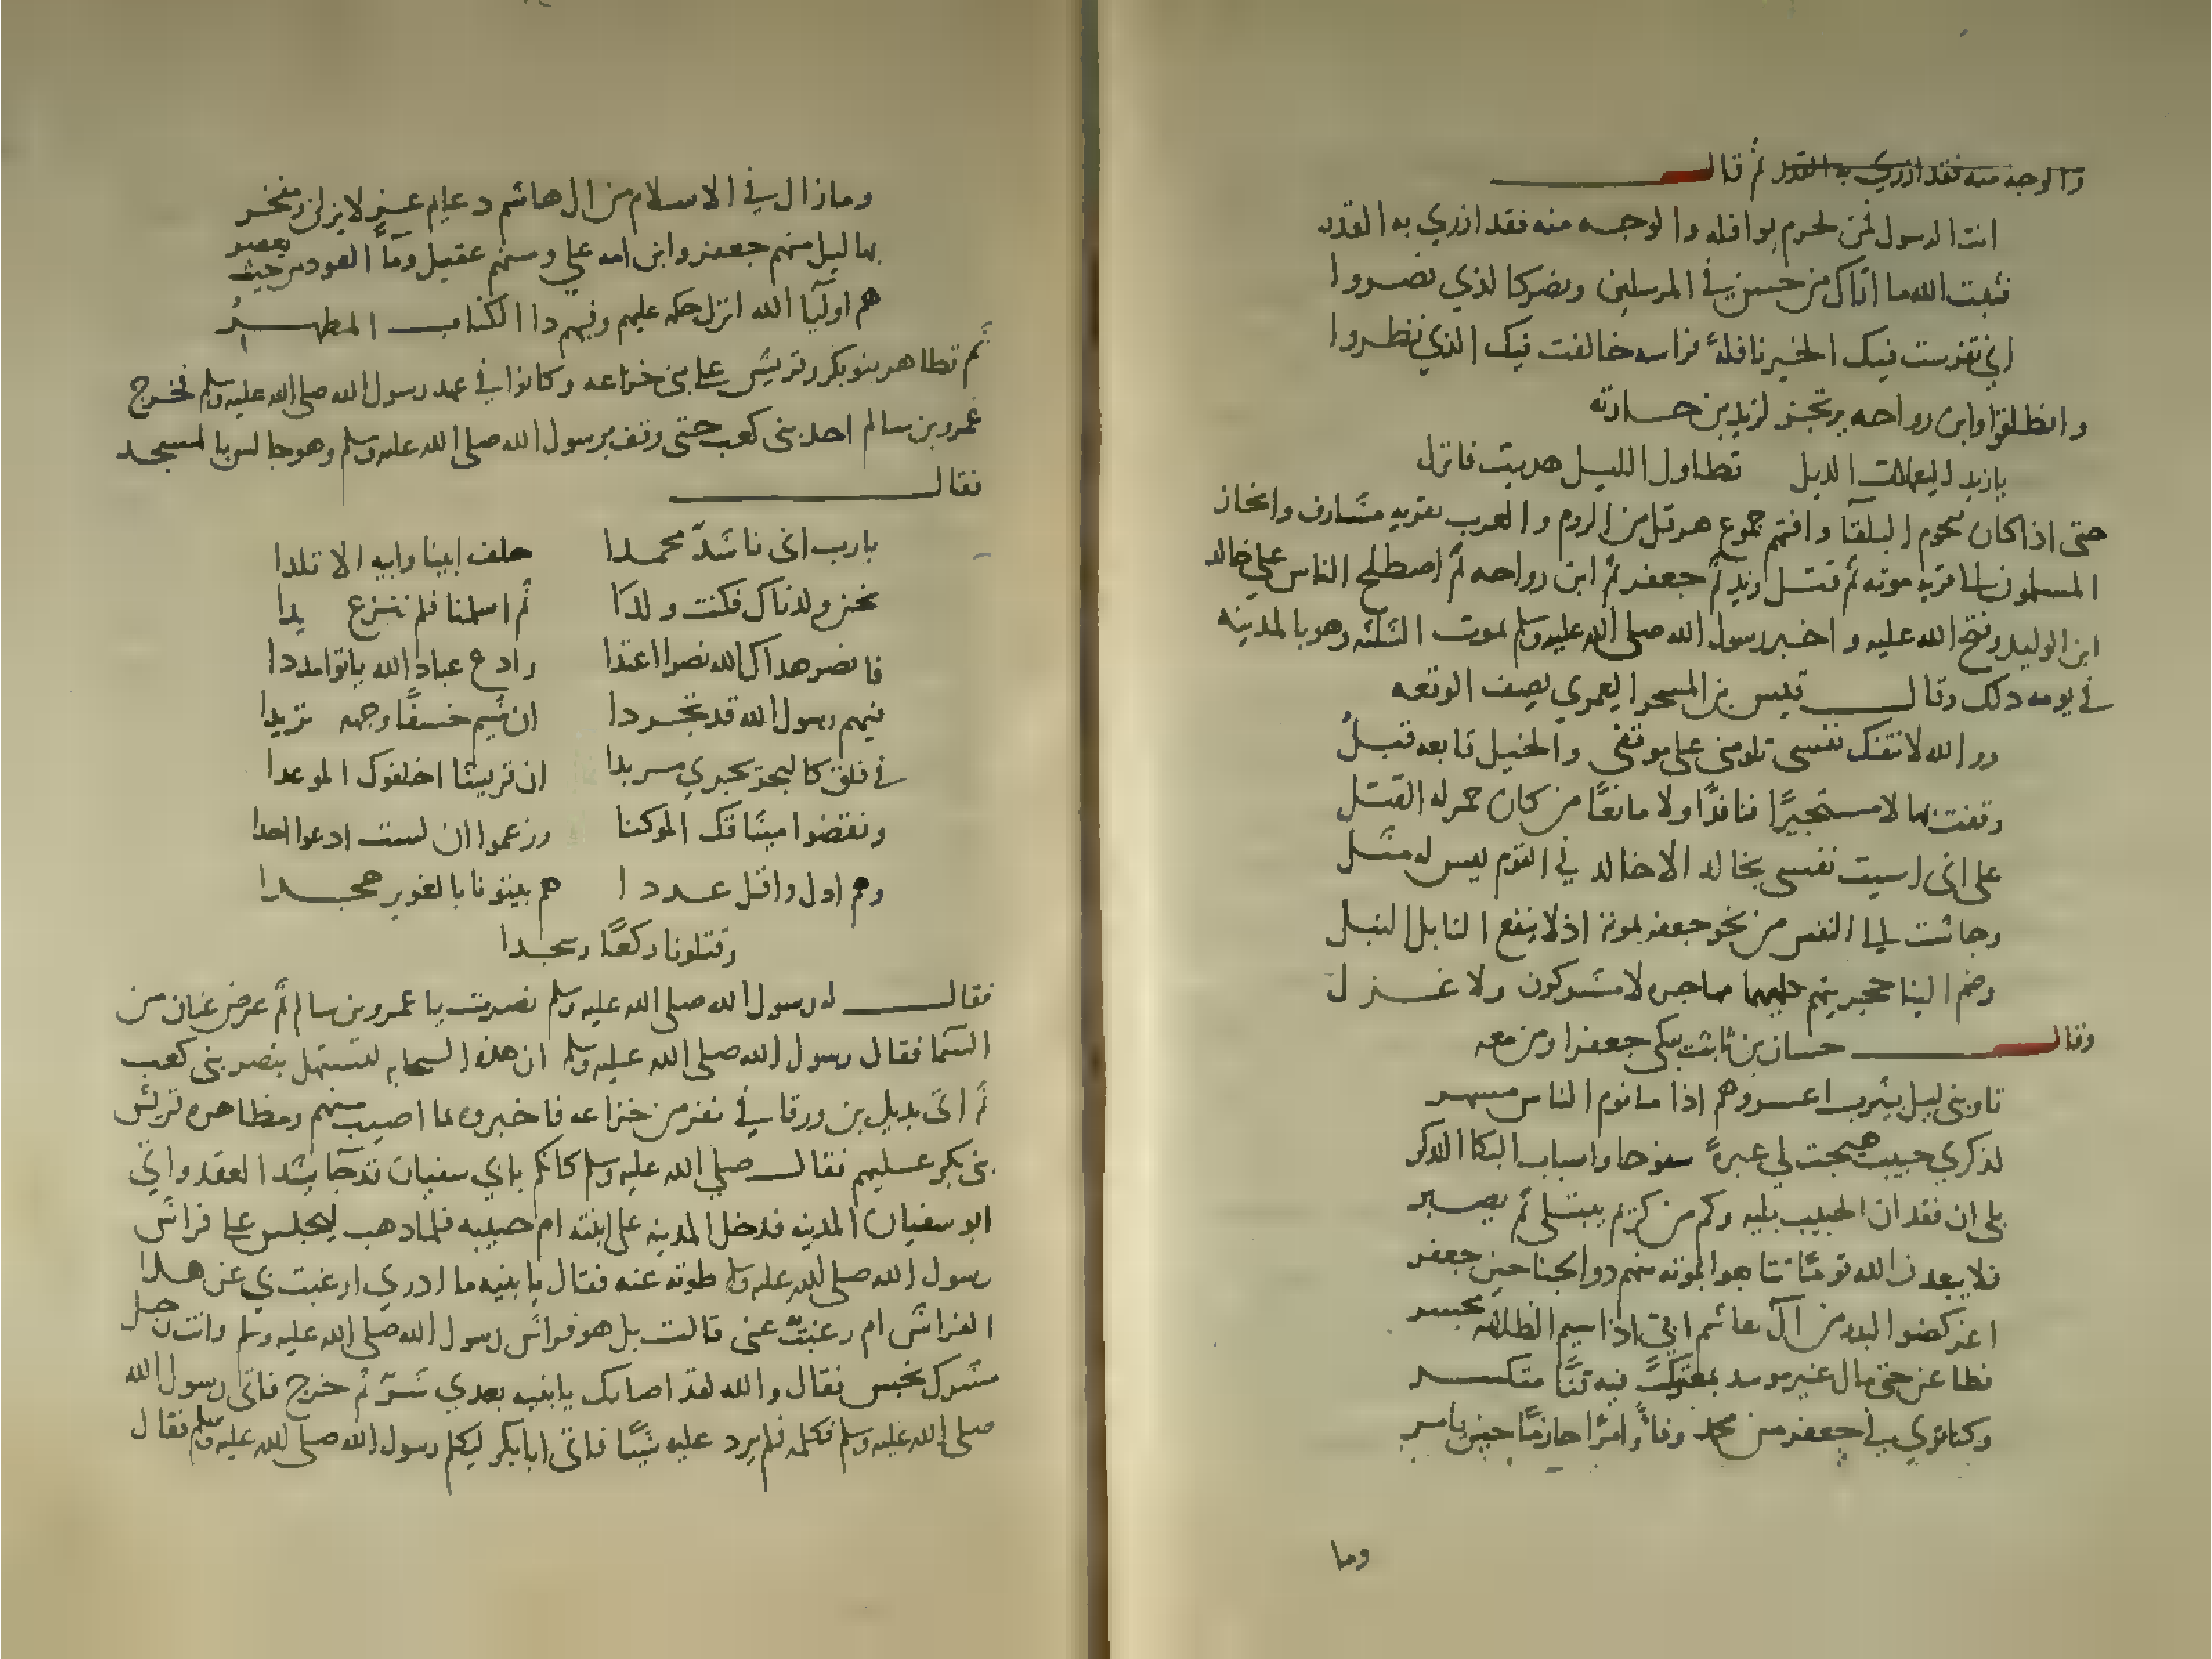 والوجه منه فقد ازري به القدر ثم قال
انت الرسول فمن يحرم نوافله والوجه منه فقد ازري به القدر
فثبت الله ما اتاك من حسن في المرسلين ونصر كا لذي نصروا
اني تفرست فيك الخير نافلة فراسه خالفت فيك الذي نظروا
وانطلقوا وابن رواحه يرتجز لزيد بن حارثه
يا زيد اليعملات الذبل تطاول الليل هديت فانزل
حتى اذا كان تخوم البلقا وافتهم جموع هرقل من الروم والعرب بقريه مشارف وانحاز
المسلمون الى قريه موته ثم قتل زيد ثم جعفر ثم ابن رواحه ثم اصطلح الناس على خالد
ابن الوليد وفتح الله عليه واخبر رسول الله صلى الله عليه وسلم بموت الثلثه وهو بالمدينه
في يومه دلك وقال قيس بن المسحر اليعمري يصف الوقعه
ووالله لا تنفك نفسي تلومني على موقفي والخيل قابعه قبل
وقفت بها لا مستجيرًا فنافذًا ولا مانعًا من كان حم له القتل
على اني اسيت نفسي بخالد الا خالد في القوم ليس له مثل
وجاشت الي النفس من نحو جعفر بموته اذ لا ينفع النابل النبل
وضم الينا حجزيتهم كليهما مهاجره لا مشركون ولا عزل
وقال حسان بن ثابت يبكي جعفرا ومن معه
تاوبني ليل بيثرب اعسر وهم اذا ما نوم الناس مسهر
لذكري حبيب هيجت لي عبرةً سفوحا واسباب البكا التذكر
بلى ان فقدان الحبيب بليه وكم من كريم يبتلى ثم يصبر
فلا يبعدن الله قومًا تتابعوا بموته منهم دوا لجناحين جعفر
اغر كضوا البدر من آل هاشم ابي اذا سيم الظلامه مجسر
فطاعن حتى مال غير موسد بمعتركٍ فيه قنًا متكسر
وكنا نري في جعفر من محمد وفاءً وامرًا حازمًا حين يامر
وما
وما زال في الاسلام من ال هاشم دعايم عز لا يزلن ومفخر
بها ليل منهم جعفر وابن امه علي ومنهم عقيل ومآ العود من حيث يعصر
هم اوليا الله انزل حكمه عليهم وفيهم دا الكتاب المطهر
ثم تظاهر بنو بكر وقريش على بني خزاعه وكانوا في عهد رسول الله صلى الله عليه وسلم فخرج
عمرو بن سالم احد بني كعب حتى وقف برسول الله صلى الله عليه وسلم وهو جالس بالمسجد
فقال
يا رب اني ناشد محمدا حلف ابينا وابيه الا تلدا
نحن ولدناك فكنت ولدا ثم اسلمنا فلم ننزع يدا
فا نصر هداك الله نصرا اعتدا وادع عباد الله ياتوا مددا
فيهم رسول الله قد تجردا ان سيم خسفًا وجهه تربدا
في فلق كالبحر يجري مربدا ان قريشا اخلفوك الموعدا
ونقضوا ميثاقك الموكدا وزعموا ان لست ادعوا احدا
وهم ادل واقل عددا هم بيتونا بالغوير هجدا
وقتلونا ركعًا وسجدا
فقال له رسول الله صلى الله عليه وسلم نصرت يا عمرو بن سالم ثم عرض عنان من
السما فقال رسول الله صلى الله عليه وسلم ان هذه السحابه لتستهل بنصر بني كعب
ثم اتى بديل بن ورقا في نفر من خزاعه فاخبروه بما اصيب منهم ومظاهره قريش
بني بكر عليهم فقال صلى الله عليه وسلم كانكم بابي سفيان قد جآ يشد العقد واتي
ابو سفيان المدينه فدخل المدينه على ابنته ام حبيبه فلما دهب ليجلس على فراش
رسول الله صلى الله عليه وسلم طوته عنه فقال يا بنيه ما ادري ارغبت بي عن هدا
الفراش ام رغبت عني قالت بل هو فراش رسول الله صلى الله عليه وسلم وانت رجل
مشرك نجس فقال والله لقد اصابك يا بنيه بعدي شر ثم خرج فاتى رسول الله
صلى الله عليه وسلم فكلمه فلم يرد عليه شيًا فاتى ابا بكر ليكلم رسول الله صلى الله عليه وسلم فقال